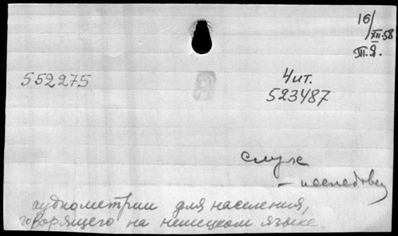 16/XII-58
III.Я.
552275
Чит.
523487
слух
– исследов
аудиометрии для населения,
говорящего на немецком языке.